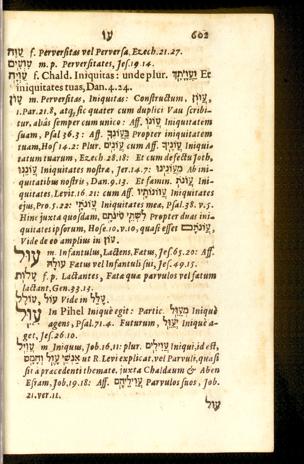 עו 602
עַוָּה f. Perversitas vel Perversa, Ezech. 21. 27.
עִוְעִים m. p. Perversitates, Jes. 19. 14.
עֲוָיָה f. Chald. Iniquitas: unde plur. Et
iniquitates tuas, Dan. 4. 24.
עָוֹן m. Perversitas, Iniquitas: Constructum, עֲוֹן,
1. Par. 21. 8, atq, sic quater cum duplici Vau scribi-
tur, aliàs semper cum unico: Aff. עֲוֹנוֹ Iniquitatem
suam, Psal. 36. 3: Aff. Propter iniquitatem
tuam, Hos 14. 2: Plur. עֲוֹנִים cum Aff. עֲוֹנֶיךָ Iniqui-
tatum tuarum, Ezech. 28. 18: Et cum defectu Joth,
עֲוֹנֵנוּ Iniquitates nostræ, Jer. 14. 7: Ab ini-
quitatibus nostris, Dan. 9. 13. Et fœmin. Ini-
quitates, Levit. 16. 21: cum Aff. Iniquitates
ejus, Pro. 5. 22: Iniquitates meæ, Psal. 38. v. 5.
Hinc juxta quosdam, Propter duas ini-
quitates ipsorum, Hose. 10. v. 10, quasi esset
Vide de eo amplius in
עוּל m. Infantulus, Lactens, Fœtus, Jes. 65. 20: Aff.
עוּלָהּ Fœtus vel Infantuli sui, Jes. 49. 15.
עָלוֹת f. p. Lactantes, Fœta qua parvulos vel fœtum
lactant, Gen. 33. 13.
עוֹלֵל, עוֹלָל Vide in עָלַל.
עָוַל In Pihel Iniquè egit: Partic. מְעַוֵּל Iniquè
agens, Psal. 71. 4. Futurum, יְעַוֵּל Iniquè a-
get, Jes. 26. 10.
עֲוִיל m. Iniquus, Job. 16. 11: plur. עֲוִילִים Iniqui, id est,
ut R. Levi explicat, vel Parvuli, quasi
sit à præcedenti themate. juxta Chaldæum & Aben
Esram, Job. 19. 18: Aff. עֲוִילֵיהֶם Parvulos suos, Job.
21. ver. 11.
עול